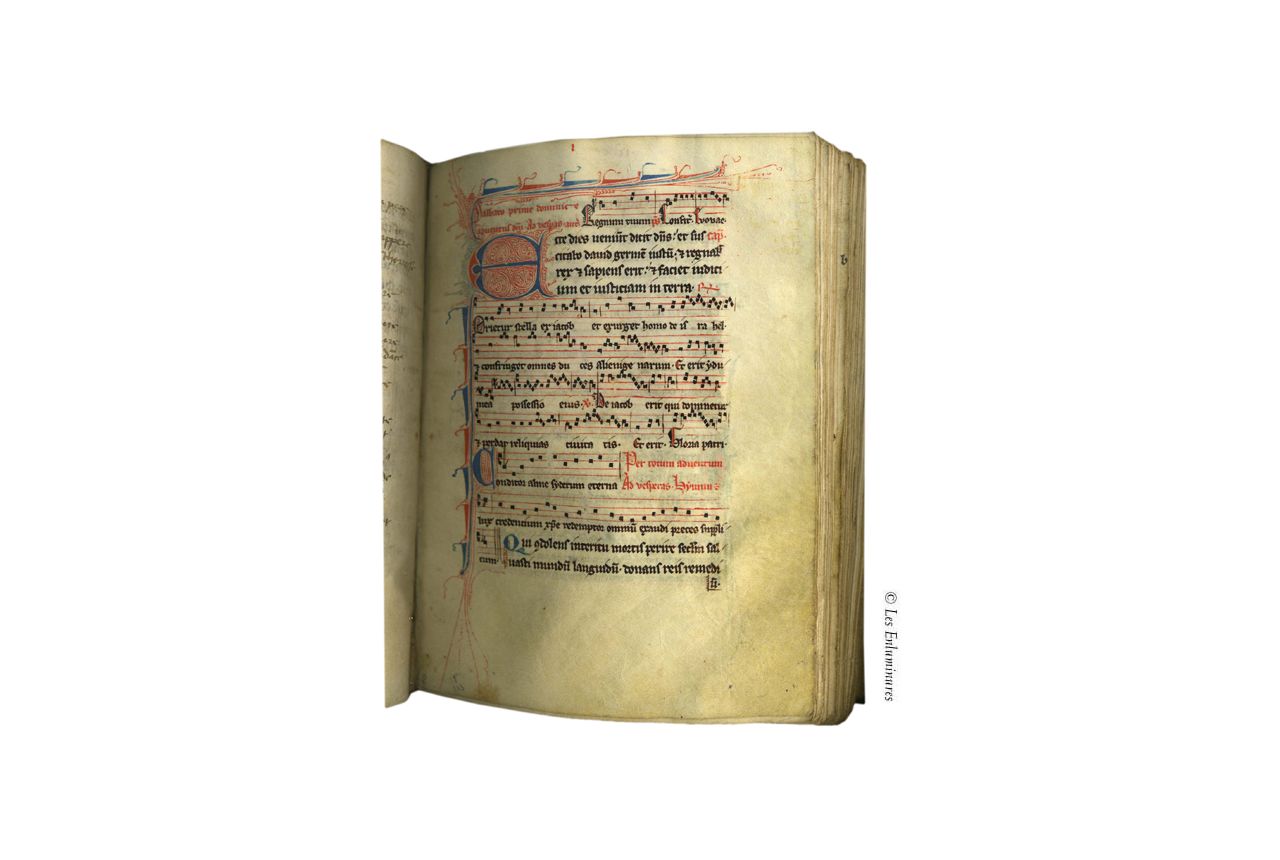 Sabbato prime dominice
adventus dni. Ad vesperas ant
Regnum tuum ps Confit. Evovae.
Ecce dies veniūt dicit dn̄s: et sus cap.
citabo david germē iustū, ⁊ regnab
rex ⁊ sapiens erit: ⁊ faciet iudici
um et iusticiam in terra.
Orietur stella ex iacob et exurget homo de is ra hel.
⁊ confringet omnes du ces alienige narum. Et erit ydu
mea possessio eius. De iacob erit qui dominetur
⁊ perdat reliquias civita tis. Et erit. Gloria patri.
Per totum adventum
Conditor alme syderum eterna Ad vesperas. Hymnus
lux credencium xp̄e redemptor omniū exaudi preces suppli
Qui 9dolens interitu mortis perire seclm̄ sal
cum. vasti mundū languidū. donans reis remedi
ū.
© Les Enluminures